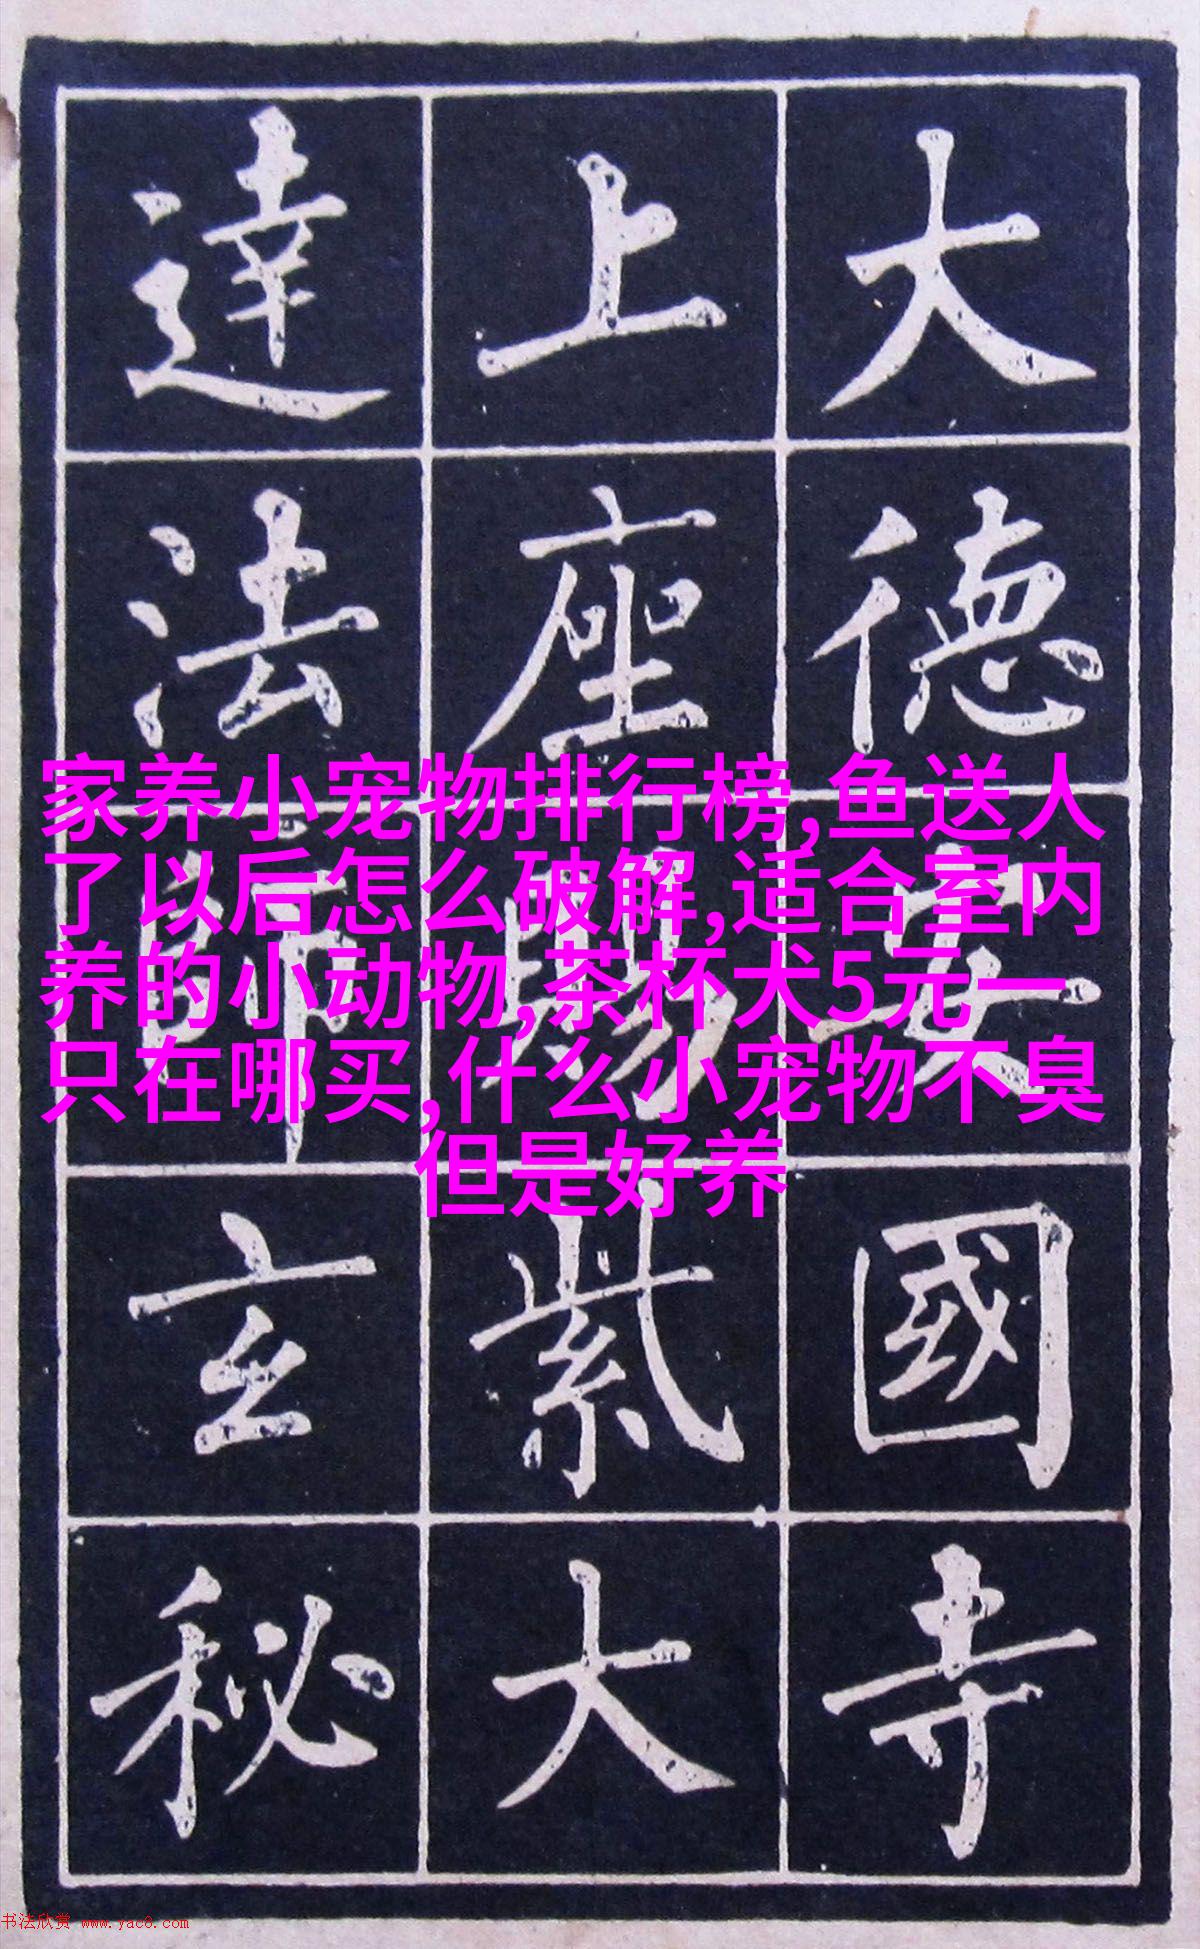 大德安國寺
上座賜紫大
達法師玄秘
家养小宠物排行榜,鱼送人
了以后怎么破解,适合室内
养的小动物,茶杯犬5元一
只在哪买,什么小宠物不臭
但是好养
书法欣赏 www.yac8.com